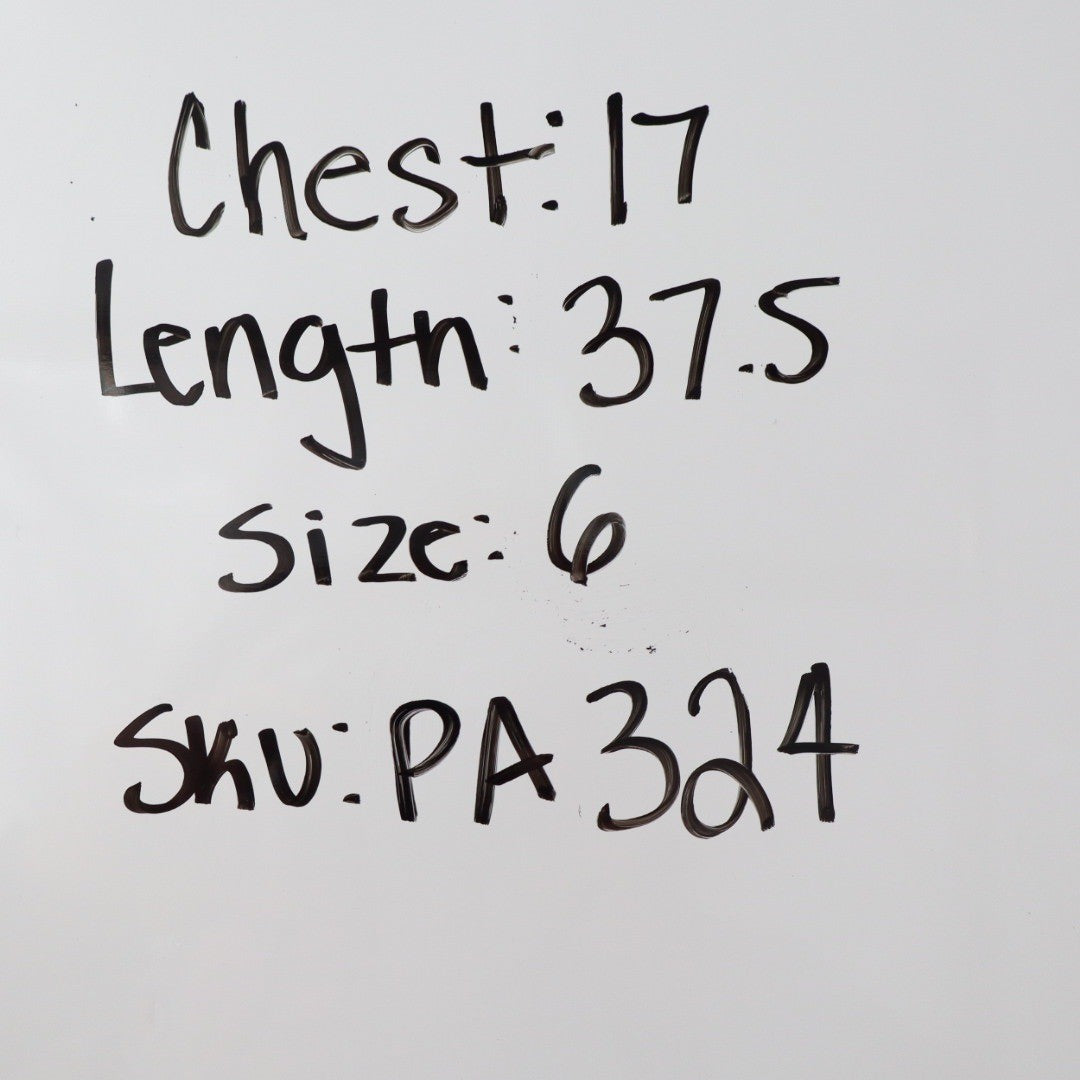 Chest: 17
Length: 37.5
Size: 6
SKU: PA324